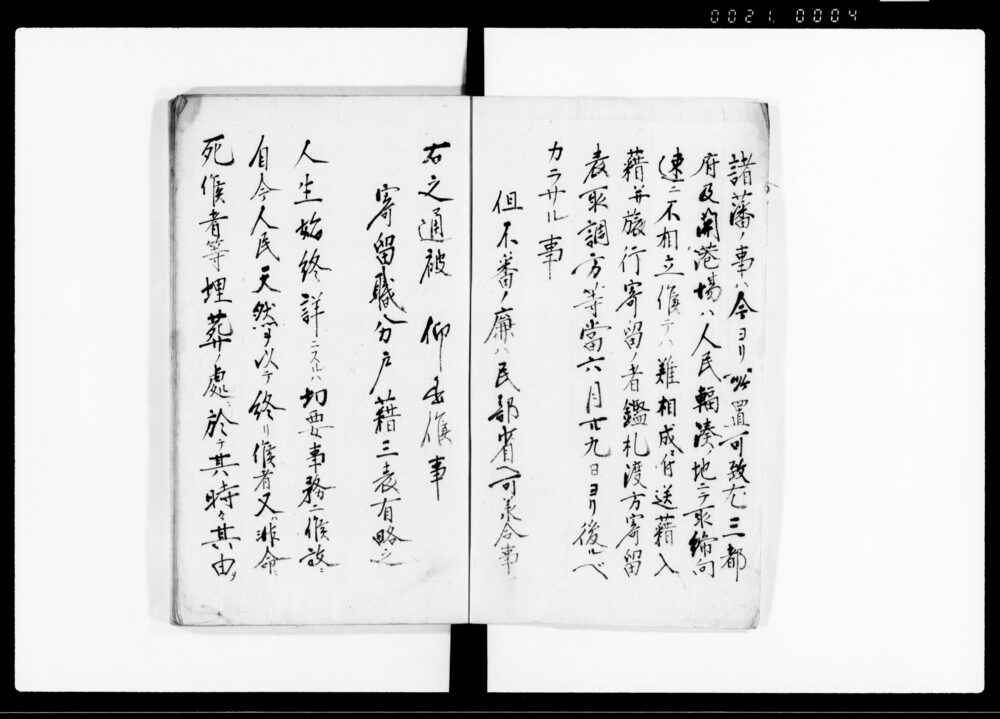 0021.0004
諸藩ノ事ハ今ヨリ処置可致尤三都
府及開港場ハ人民輻湊ノ地ニテ取締向
速ニ不相立候テハ難相成ニ付送籍入
籍并旅行寄留ノ者鑑札渡方寄留
表取調方等當六月廿九日ヨリ後ルヘ
カラサル事
但不審ノ廉ハ民部省ヘ可承合事
右之通被 仰出候事
寄留職分戸籍三表有略之
人生始終詳ニスルハ切要事務ニ候故ニ
自今人民天然ヲ以テ終リ候者又ハ非命ニ
死候者等埋葬ノ處ニ於テ其時々其由ヲ